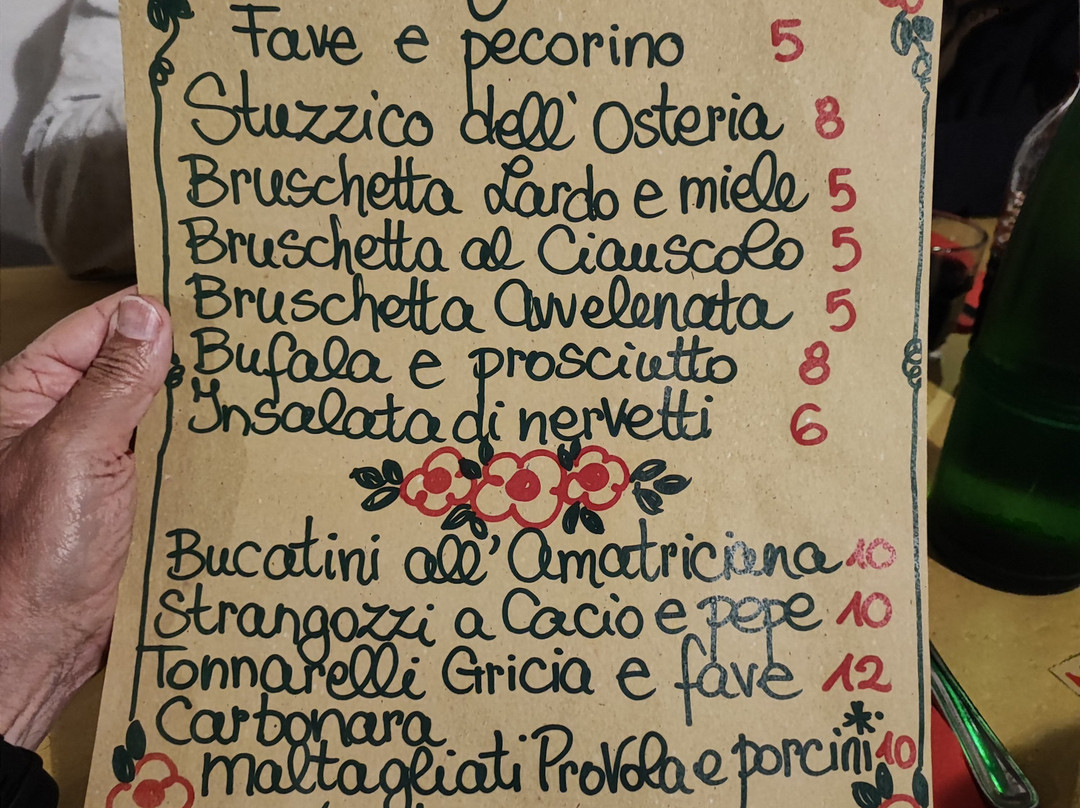 Fave e pecorino 5
Stuzzico dell' Osteria 8
Bruschetta Lardo e miele 5
Bruschetta al Ciauscolo 5
Bruschetta Avvelenata 5
Bufala e prosciutto 8
Insalata di nervetti 6
Bucatini all' Amatriciana 10
Strangozzi a Cacio e pepe 10
Tonnarelli Gricia e fave 12
Carbonara
maltagliati Provola e porcini* 10